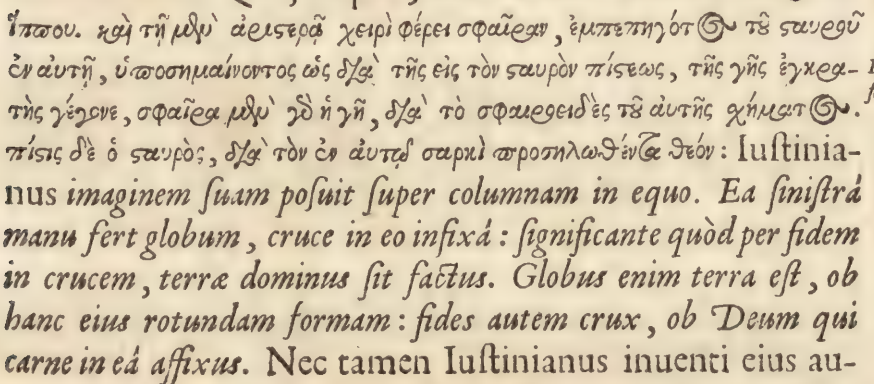 ἵππου. καὶ τῇ μὲν ἀριστερᾷ χειρὶ φέρει σφαῖραν, ἐμπεπηγότος τοῦ σταυροῦ
ἐν αὐτῇ, ὑποσημαίνοντος ὡς διὰ τῆς εἰς τὸν σταυρὸν πίστεως, τῆς γῆς ἐγκρα-
τὴς γέγονε, σφαῖρα μὲν γὸ ἡ γῆ, διὰ τὸ σφαιροειδὲς τοῦ αὐτῆς χήματος.
πίστις δὲ ὁ σταυρὸς, διὰ τὸν ἐν αὐτῷ σαρκὶ προσηλωθέντα θεόν: Iuſtinia-
nus imaginem ſuam poſuit ſuper columnam in equo. Ea ſiniſtrâ
manu fert globum, cruce in eo infixâ: ſignificante quòd per fidem
in crucem, terræ dominus ſit factus. Globus enim terra eſt, ob
hanc eius rotundam formam: fides autem crux, ob Deum qui
carne in eâ affixus. Nec tamen Iuſtinianus inuenti eius au-